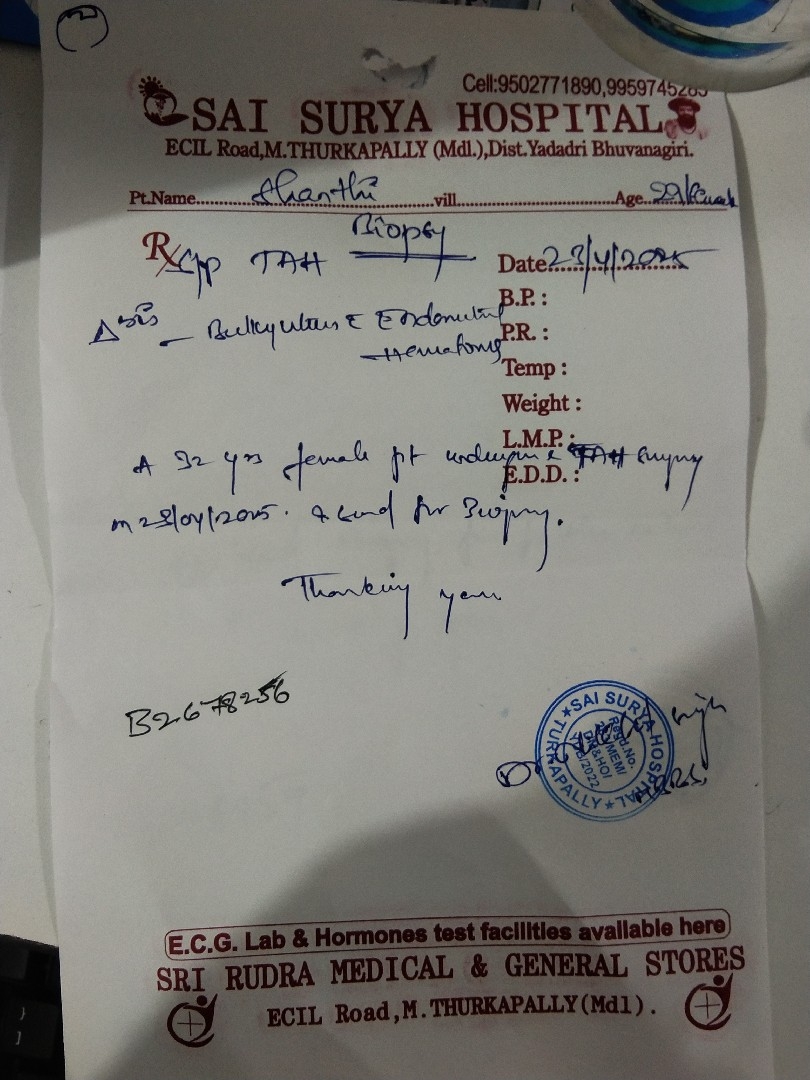 2
Cell:9502771890,9959745285
SAI SURYA HOSPITAL
ECIL Road,M.THURKAPALLY (Mdl.),Dist.Yadadri Bhuvanagiri.
Pt.Name.......Shanthi.......vill.......Age..29/Female
Biopsy
Rx TAH
Date 23/4/2025
B.P. :
Δsis – Bulky uterus c Endometrial
P.R. :
- Hematoma
Temp :
Weight :
L.M.P. :
A 32 yrs female pt undergone TAH surgery
E.D.D. :
on 23/04/2025. & send for Biopsy.
Thanking you
B2678256
SAI SURYA HOSPITAL
TURKAPALLY
Regd.No.
DM&HO/
/2022
MBBS,
E.C.G. Lab & Hormones test facilities available here
SRI RUDRA MEDICAL & GENERAL STORES
ECIL Road,M.THURKAPALLY(Mdl).